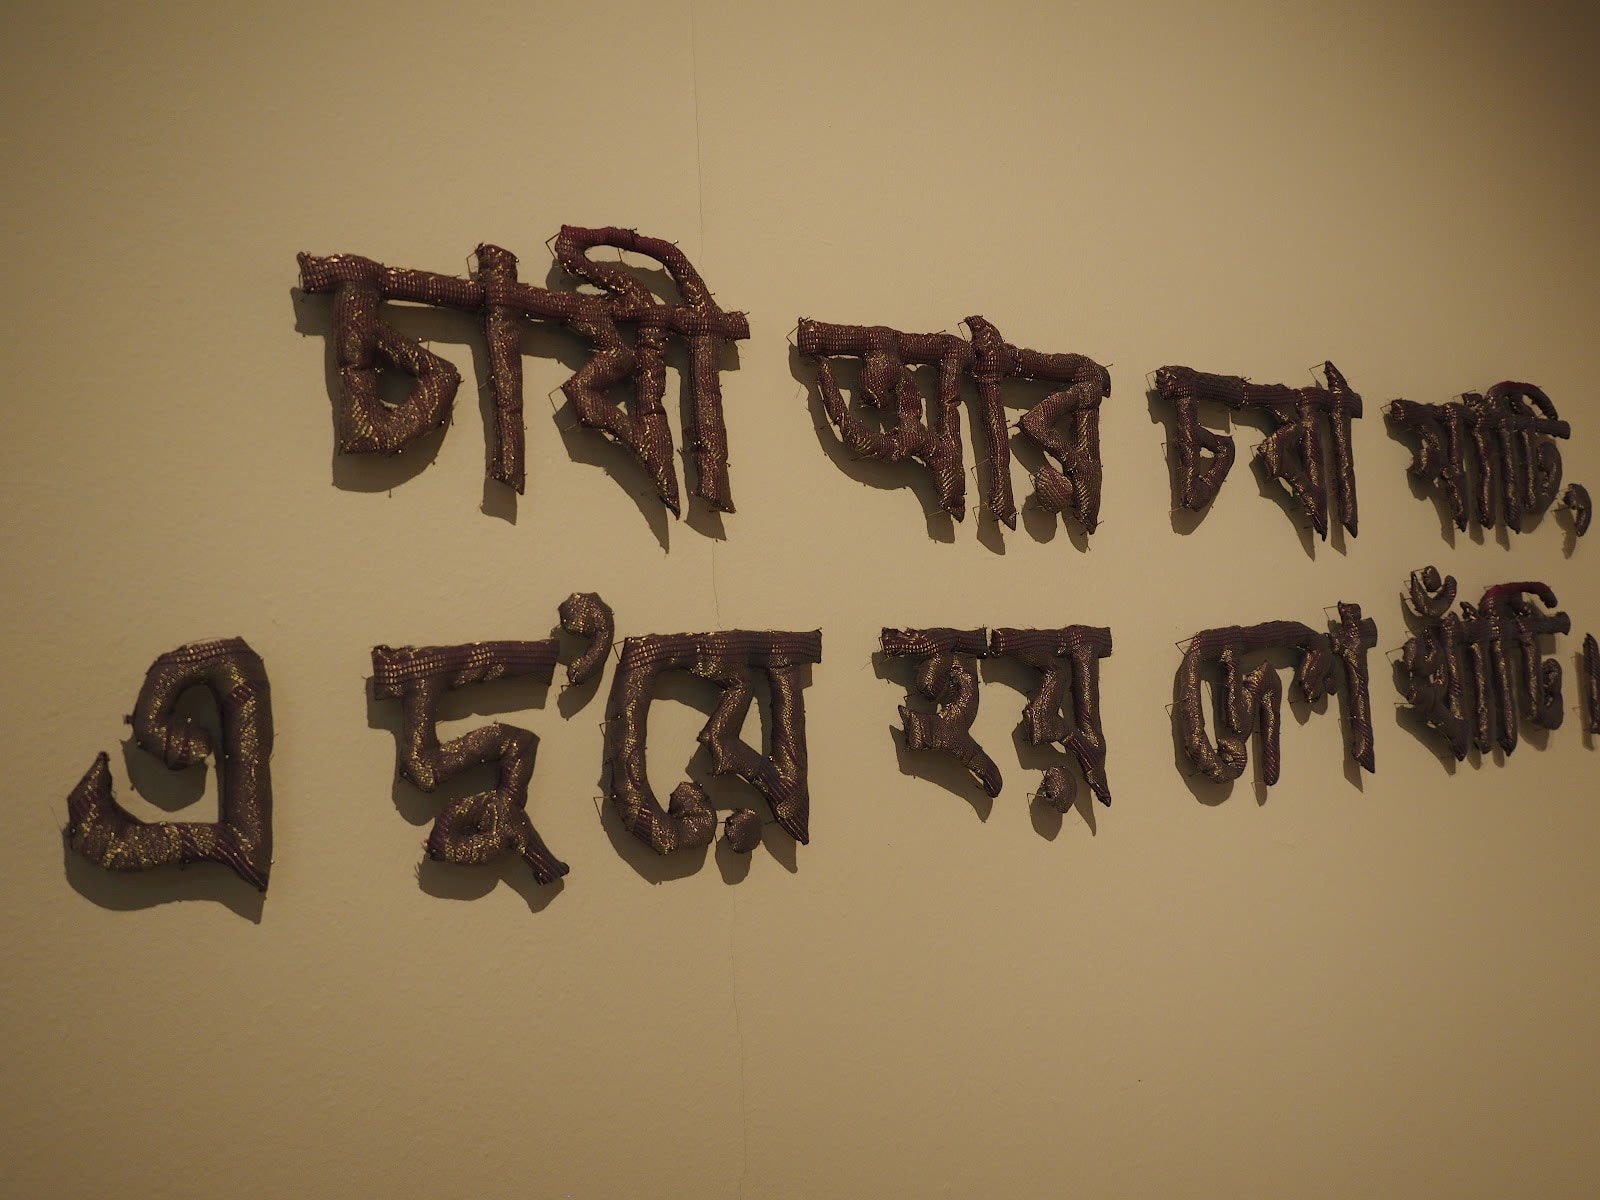 চাষী আর চষা মাটি,
এ দু'য়ে হয় দেশ খাঁটি।